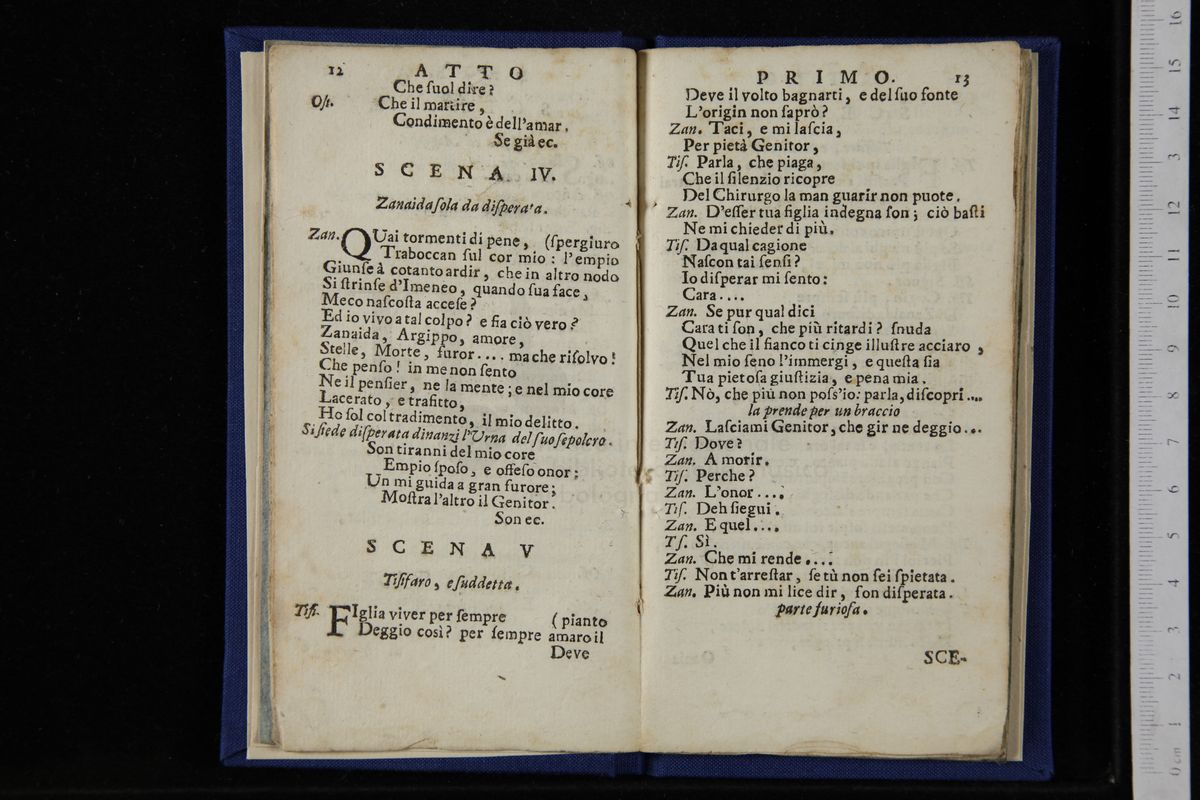 12 ATTO
Che ſuol dire?
Oſi. Che il martire,
Condimento è dell'amar.
Se già ec.
SCENA IV.
Zanaida ſola da diſperata.
Zan. QUai tormenti di pene, (ſpergiuro
Traboccan ſul cor mio: l'empio
Giunſe à cotanto ardir, che in altro nodo
Si ſtrinſe d'Imeneo, quando ſua face,
Meco naſcoſta acceſe?
Ed io vivo a tal colpo? e fia ciò vero?
Zanaida, Argippo, amore,
Stelle, Morte, furor.... ma che riſolvo!
Che penſo! in me non ſento
Ne il penſier, ne la mente; e nel mio core
Lacerato, e trafitto,
Ho ſol col tradimento, il mio delitto.
Si ſiede diſperata dinanzi l'Urna del ſuo ſepolcro.
Son tiranni del mio core
Empio ſpoſo, e offeſo onor;
Un mi guida a gran furore;
Moſtra l'altro il Genitor.
Son ec.
SCENA V
Tiſifaro, e ſuddetta.
Tiſi. FIglia viver per ſempre (pianto
Deggio così? per ſempre amaro il
Deve
PRIMO. 13
Deve il volto bagnarti, e del ſuo fonte
L'origin non ſaprò?
Zan. Taci, e mi laſcia,
Per pietà Genitor,
Tiſ. Parla, che piaga,
Che il ſilenzio ricopre
Del Chirurgo la man guarir non puote.
Zan. D'eſſer tua figlia indegna ſon; ciò baſti
Ne mi chieder di più.
Tiſ. Da qual cagione
Naſcon tai ſenſi?
Io diſperar mi ſento:
Cara....
Zan. Se pur qual dici
Cara ti ſon, che più ritardi? ſnuda
Quel che il fianco ti cinge illuſtre acciaro,
Nel mio ſeno l'immergi, e queſta ſia
Tua pietoſa giuſtizia, e pena mia.
Tiſ. Nò, che più non poſs'io: parla, diſcopri....
la prende per un braccio
Zan. Laſciami Genitor, che gir ne deggio...
Tiſ. Dove?
Zan. A morir.
Tiſ. Perche?
Zan. L'onor....
Tiſ. Deh ſiegui.
Zan. E quel....
Tſ. Sì.
Zan. Che mi rende....
Tiſ. Non t'arreſtar, ſe tù non ſei ſpietata.
Zan. Più non mi lice dir, ſon diſperata.
parte furioſa.
SCE-
0 cm 1 2 3 4 5 6 7 8 9 10 11 12 13 14 15 16